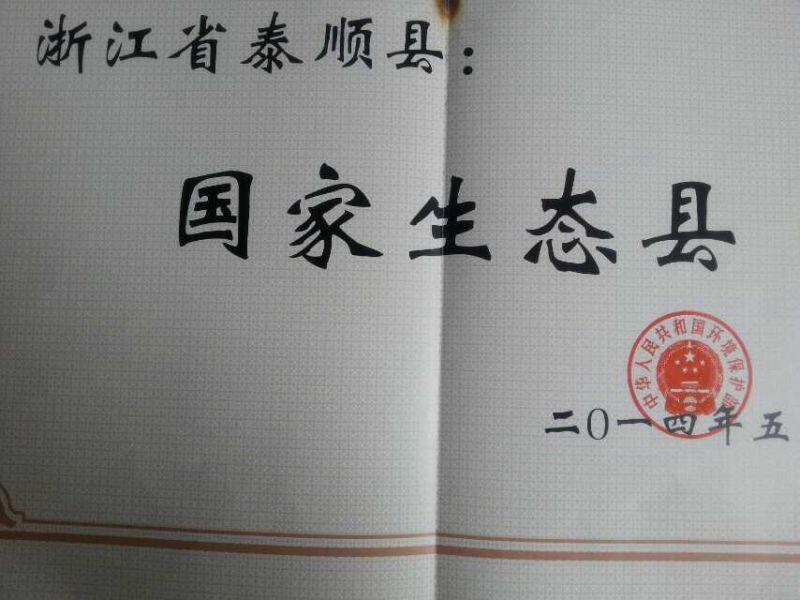 浙江省泰顺县：
国家生态县
中华人民共和国环境保护部
二〇一四年五